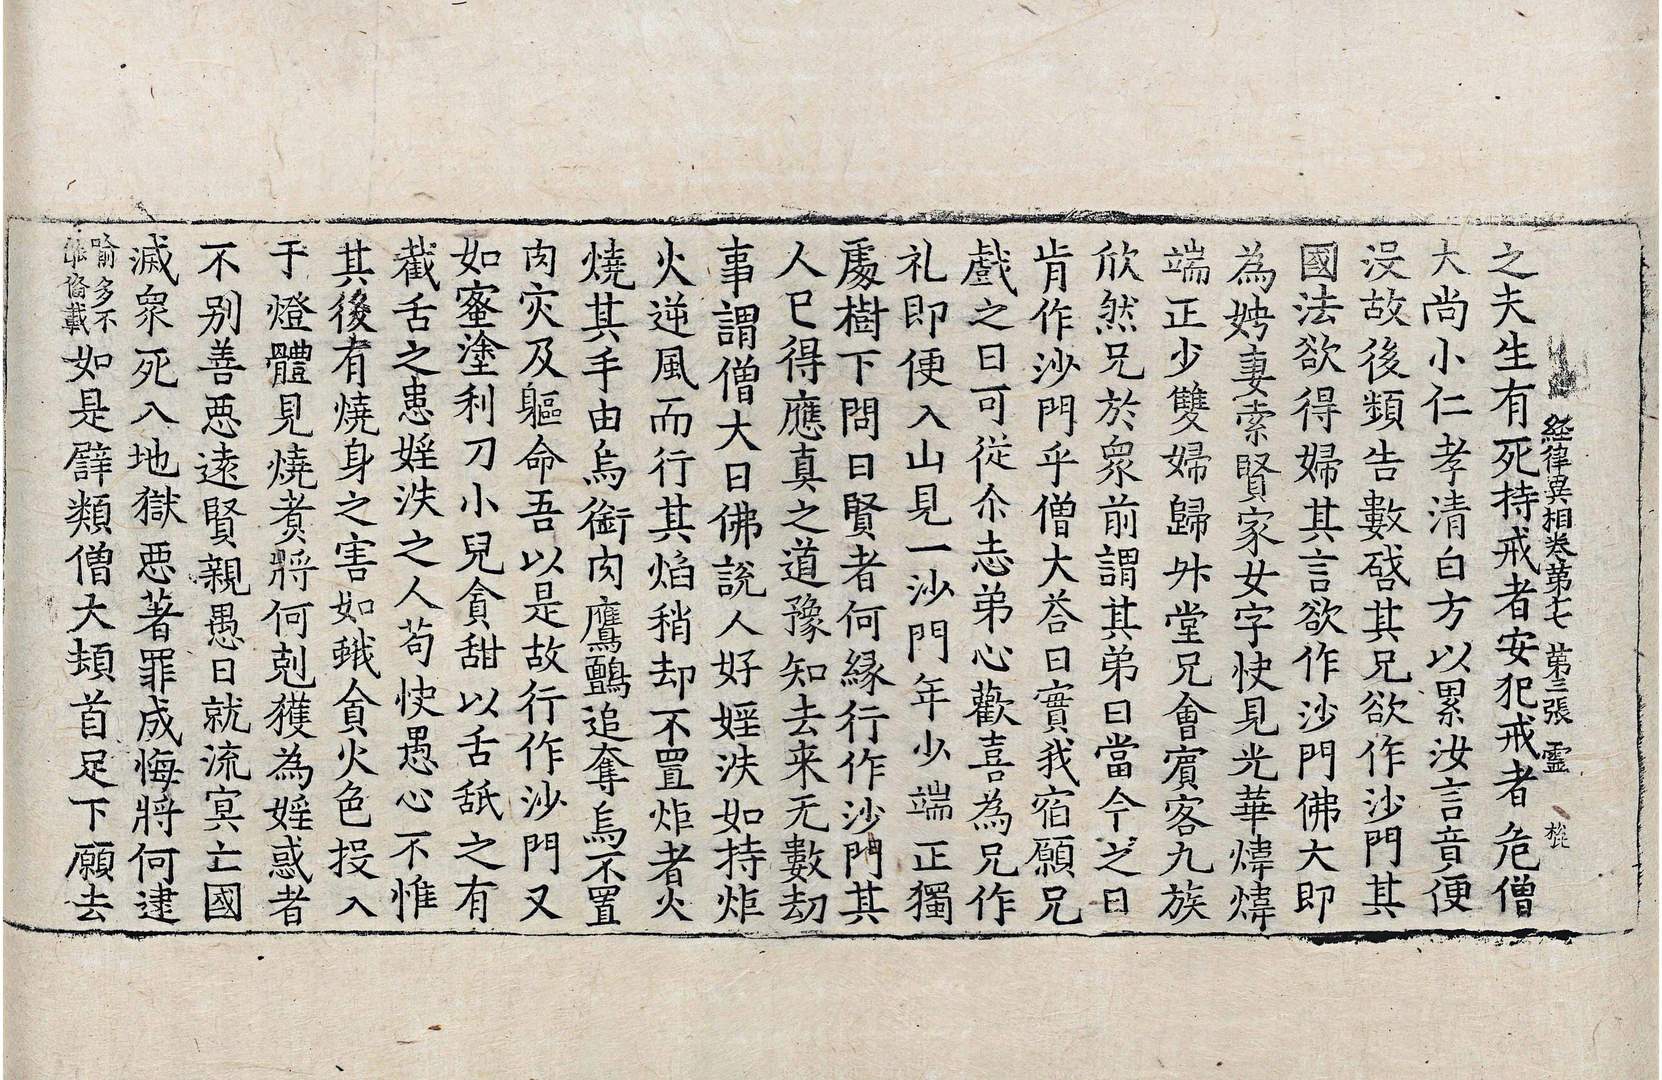 経律異相卷第十七 第三張 霊
之夫生有死持戒者安犯戒者危僧
大尚小仁孝清白方以累汝言音便
没故後頻告數啓其兄欲作沙門其
國法欲得婦其言欲作沙門佛大即
為娉妻索賢家女字快見光華煒煒
端正少雙婦歸外堂兄會賔客九族
欣然兄於衆前謂其弟曰當今之日
肯作沙門乎僧大荅曰實我宿願兄
戲之曰可從尒志弟心歡喜為兄作
礼即便入山見一沙門年少端正獨
處樹下問曰賢者何緣行作沙門其
人已得應真之道豫知去来无數劫
事謂僧大曰佛說人好婬泆如持炬
火逆風而行其焰稍却不置炬者火
燒其手由烏銜肉鷹鸇追奪烏不置
肉灾及軀命吾以是故行作沙門又
如蜜塗利刀小兒貪甜以舌舐之有
截舌之患婬泆之人苟快愚心不惟
其後有燒身之害如蛾貪火色投入
于燈體見燒煑將何剋獲為婬惑者
不别善惡遠賢親愚日就流冥亡國
滅衆死入地獄惡著罪成悔將何逮
喻多不
備載
如是譬類僧大頭首足下願去